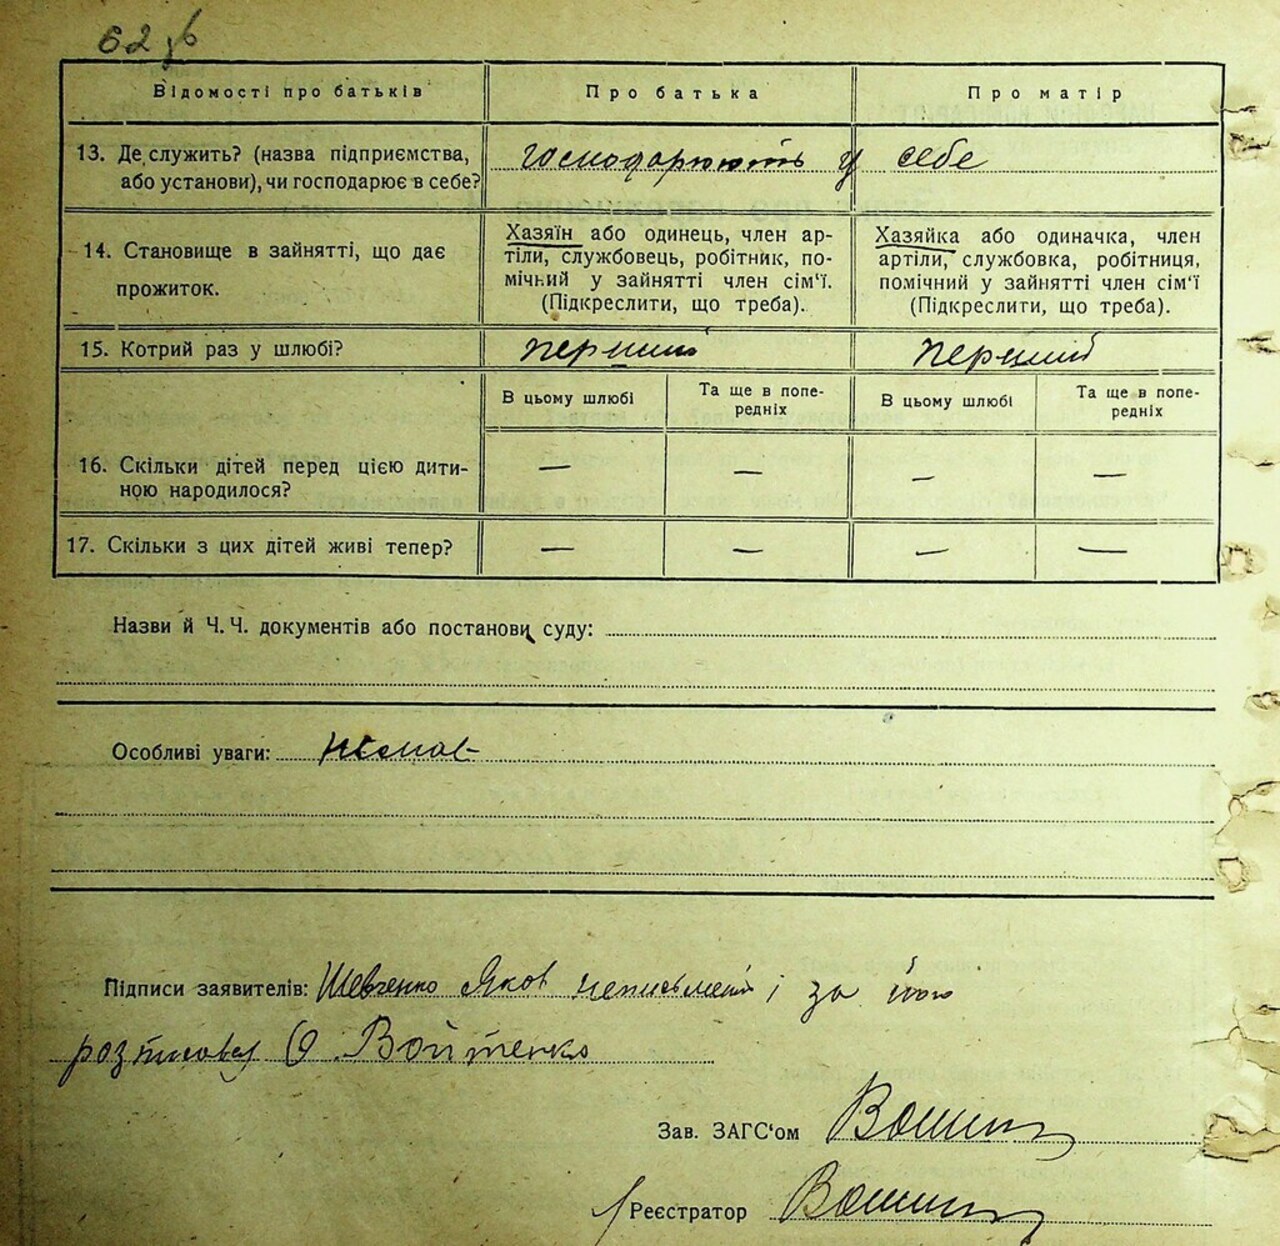 62 зв
Відомості про батьків
Про батька
Про матір
13. Де служить? (назва підприємства,
або установи), чи господарює в себе?
господарюють у себе
14. Становище в зайнятті, що дає
прожиток.
Хазяїн або одинець, член ар-
тіли, службовець, робітник, по-
мічний у зайнятті член сім'ї.
(Підкреслити, що треба).
Хазяйка або одиначка, член
артіли, службовка, робітниця,
помічний у зайнятті член сім'ї
(Підкреслити, що треба).
15. Котрий раз у шлюбі?
перший
перший
В цьому шлюбі
Та ще в попе-
редніх
В цьому шлюбі
Та ще в попе-
редніх
16. Скільки дітей перед цією дити-
ною народилося?
— — — —
17. Скільки з цих дітей живі тепер?
— — — —
Назви й Ч. Ч. документів або постанови суду:
Особливі уваги: немає
Підписи заявителів: Шевченко Яков неписьмений і за його
розписався О. Войтенко
Зав. ЗАГС'ом
Реєстратор